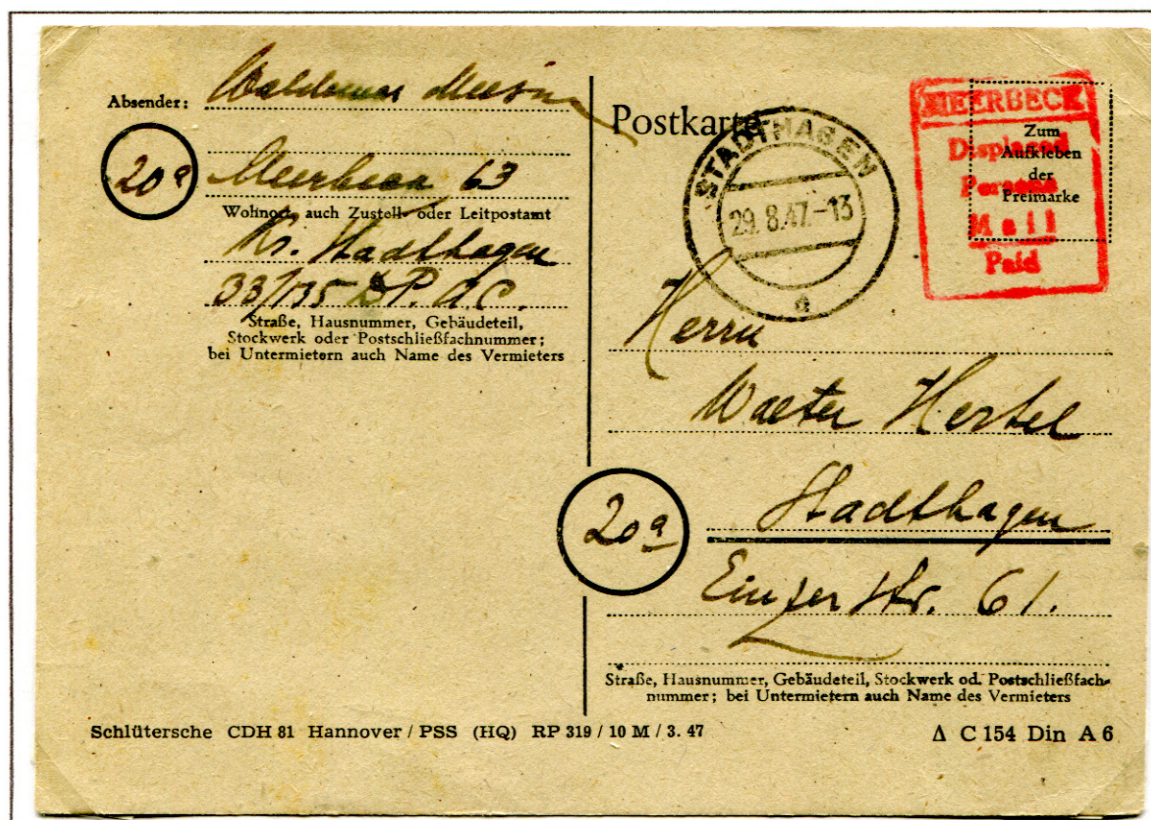 Absender: Waldemar
20a
Meerbeck 63
Wohnort, auch Zustell- oder Leitpostamt
Kr. Stadthagen
33/135 D.P. A.C.
Straße, Hausnummer, Gebäudeteil,
Stockwerk oder Postschließfachnummer;
bei Untermietern auch Name des Vermieters
Postkarte
STADTHAGEN
29.8.47.-13
a
MEERBECK
Displaced
Persons
Mail
Paid
Zum
Aufkleben
der
Freimarke
Herrn
Walter Hertel
20a
Stadthagen
Str. 61.
Straße, Hausnummer, Gebäudeteil, Stockwerk od. Postschließfach-
nummer; bei Untermietern auch Name des Vermieters
Schlütersche CDH 81 Hannover / PSS (HQ) RP 319 / 10 M / 3. 47
Δ C 154 Din A 6